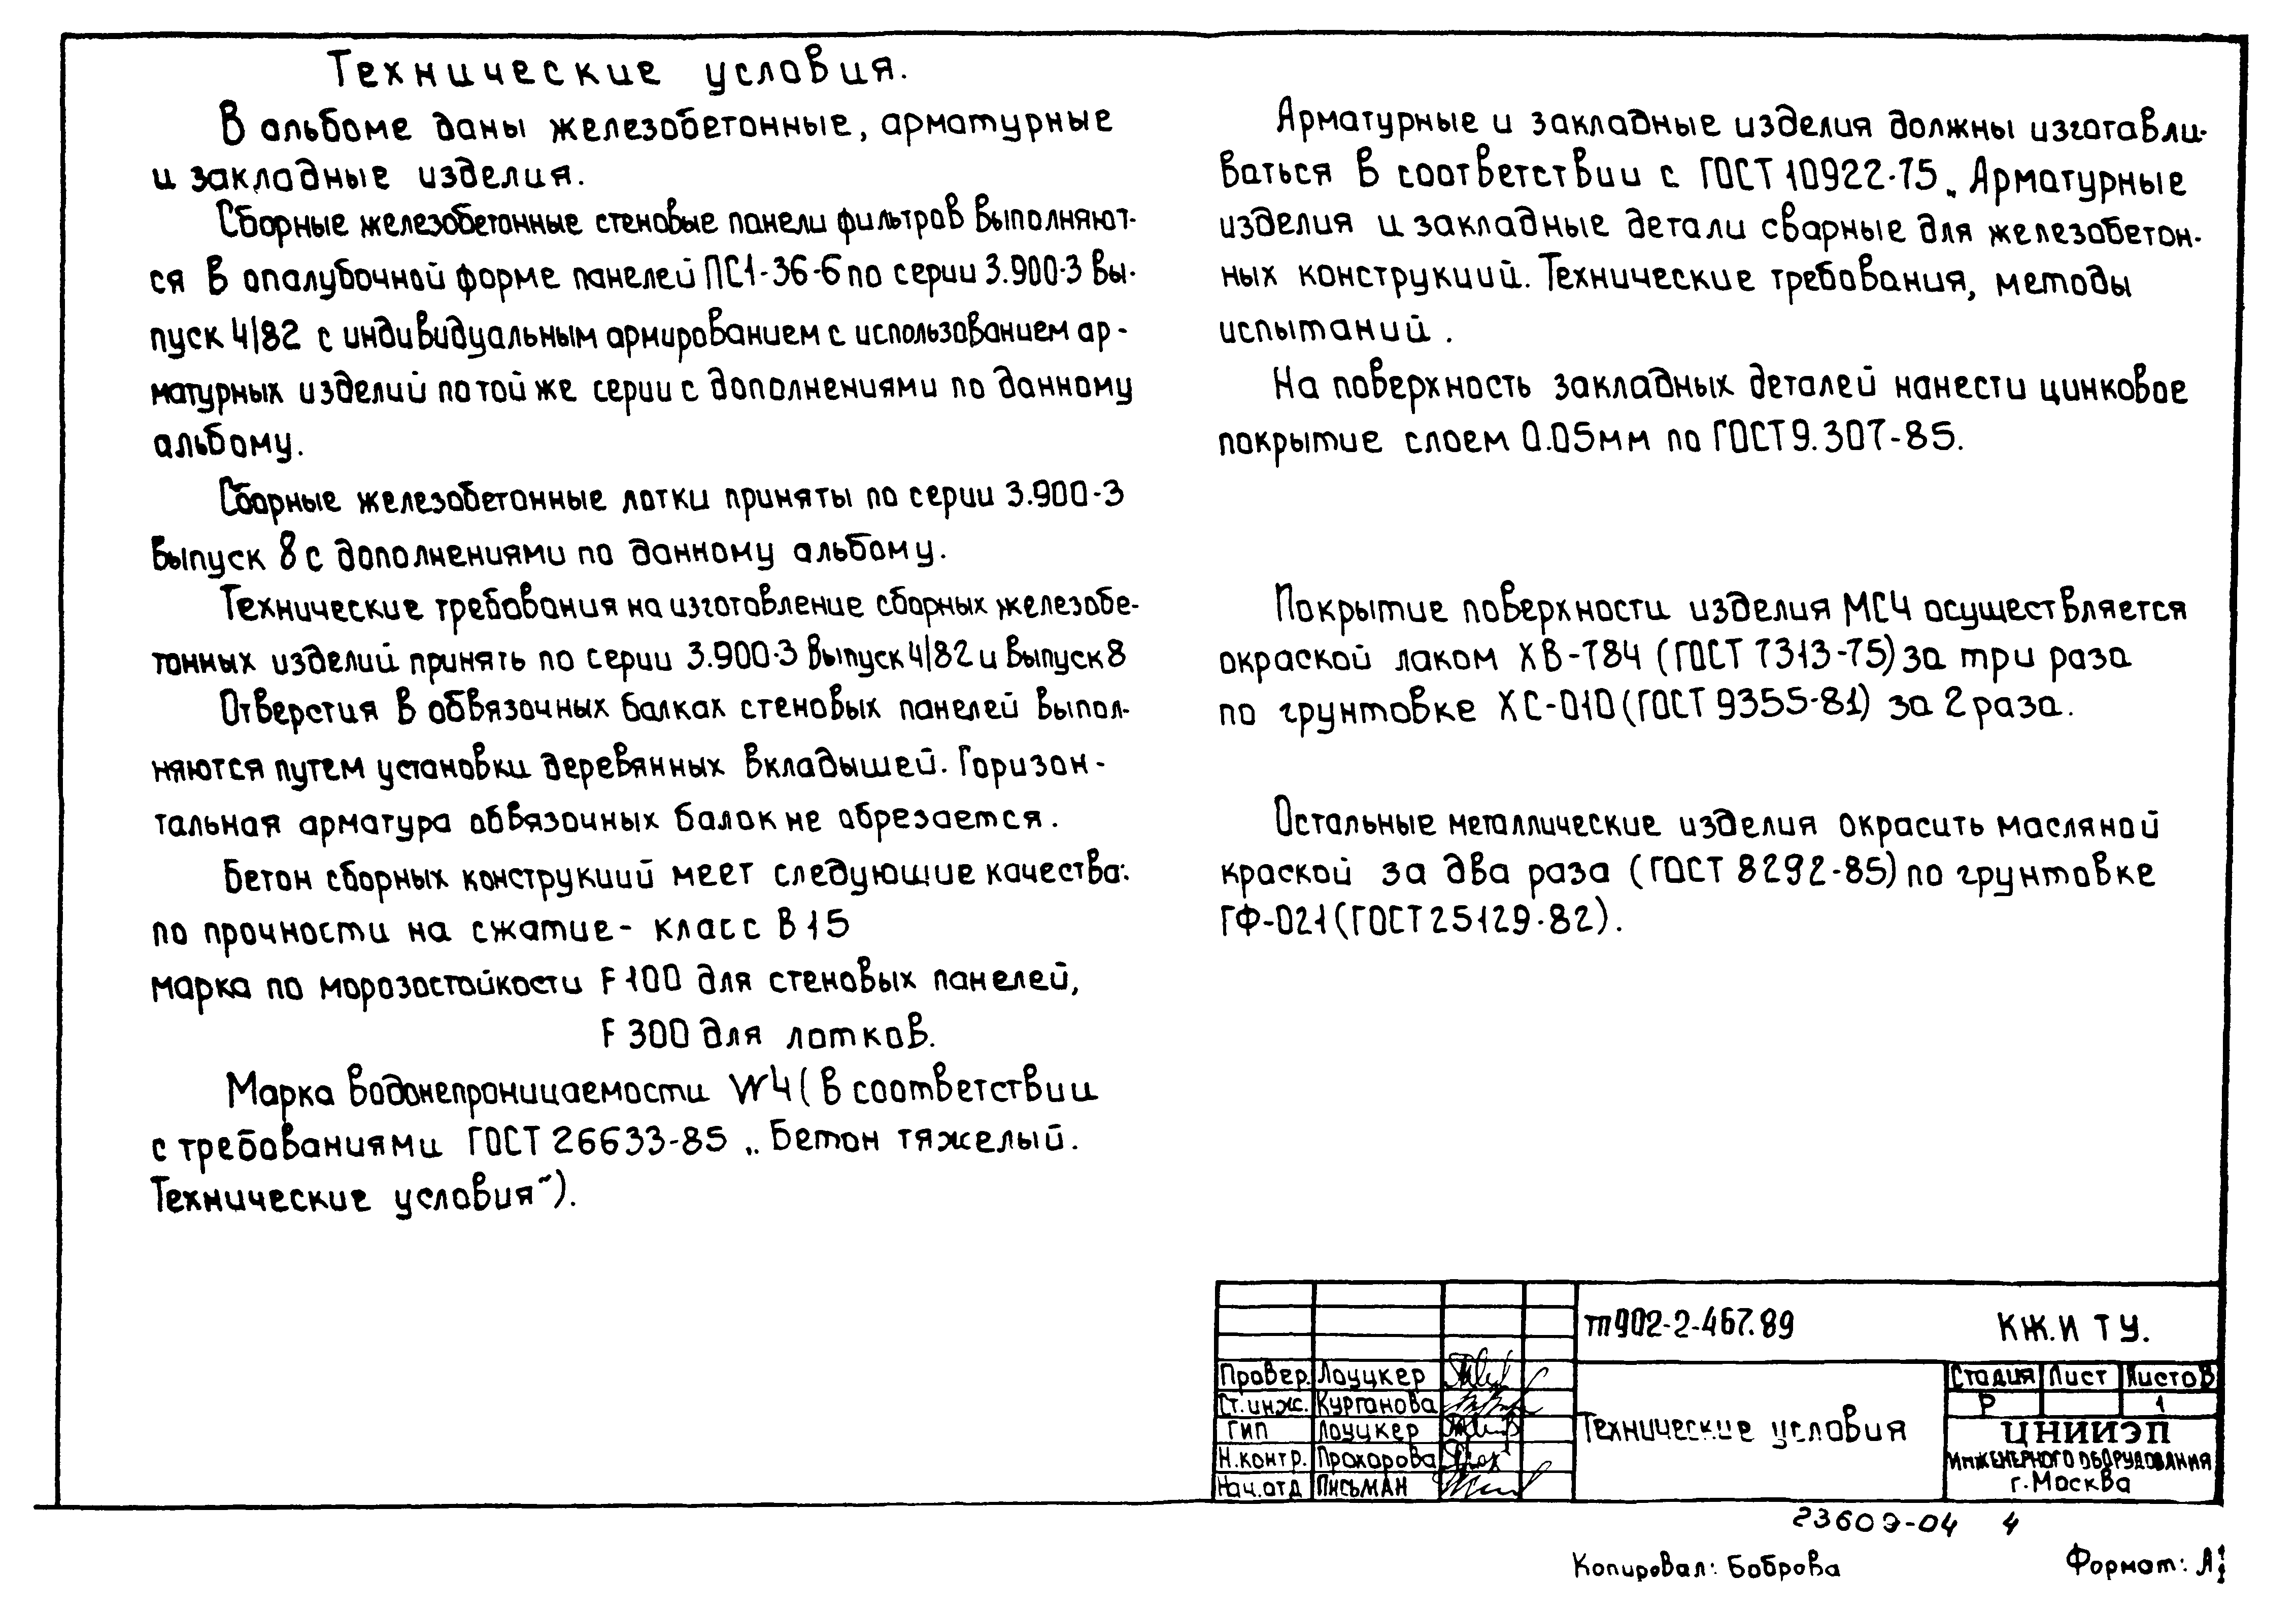 Технические условия.
В альбоме даны железобетонные, арматурные
и закладные изделия.
Сборные железобетонные стеновые панели фильтров выполняют-
ся в опалубочной форме панелей ПС1-36-6 по серии 3.900-3 Вы-
пуск 4/82 с индивидуальным армированием с использованием ар-
матурных изделий по той же серии с дополнениями по данному
альбому.
Сборные железобетонные лотки приняты по серии 3.900-3
Выпуск 8 с дополнениями по данному альбому.
Технические требования на изготовление сборных железобе-
тонных изделий принять по серии 3.900-3 Выпуск 4/82 и Выпуск 8
Отверстия в обвязочных балках стеновых панелей выпол-
няются путем установки деревянных вкладышей. Горизон-
тальная арматура обвязочных балок не обрезается.
Бетон сборных конструкиий меет следующие качества:
по прочности на сжатие - класс В 15
марка по морозостойкости F 100 для стеновых панелей,
F 300 для лотков.
Марка водонепроницаемости W4 (в соответствии
с требованиями ГОСТ 26633-85 „Бетон тяжелый.
Технические условия").
Арматурные и закладные изделия должны изготавли-
ваться в соответствии с ГОСТ 10922-75 „Арматурные
изделия и закладные детали сварные для железобетон-
ных конструкиий. Технические требования, методы
испытаний.
На поверхность закладных деталей нанести цинковое
покрытие слоем 0.05мм по ГОСТ 9.307-85.
Покрытие поверхности изделия МС4 осуществляется
окраской лаком ХВ-784 (ГОСТ 7313-75) за три раза
по грунтовке ХС-010 (ГОСТ 9355-81) за 2 раза.
Остальные металлические изделия окрасить масляной
краской за два раза (ГОСТ 8292-85) по грунтовке
ГФ-021 (ГОСТ 25129-82).
тп902-2-467.89 КЖ.И ТУ.
Провер. Лоуцкер
Ст.инж. Курганова
Гип Лоуцкер
Н.контр. Прохорова
Нач.отд Письман
Технические условия
Стадия Лист Листов
Р 1
ЦНИИЭП
ИНЖЕНЕРНОГО ОБОРУДОВАНИЯ
г.Москва
23609-04 4
Копировал: Боброва
Формат: